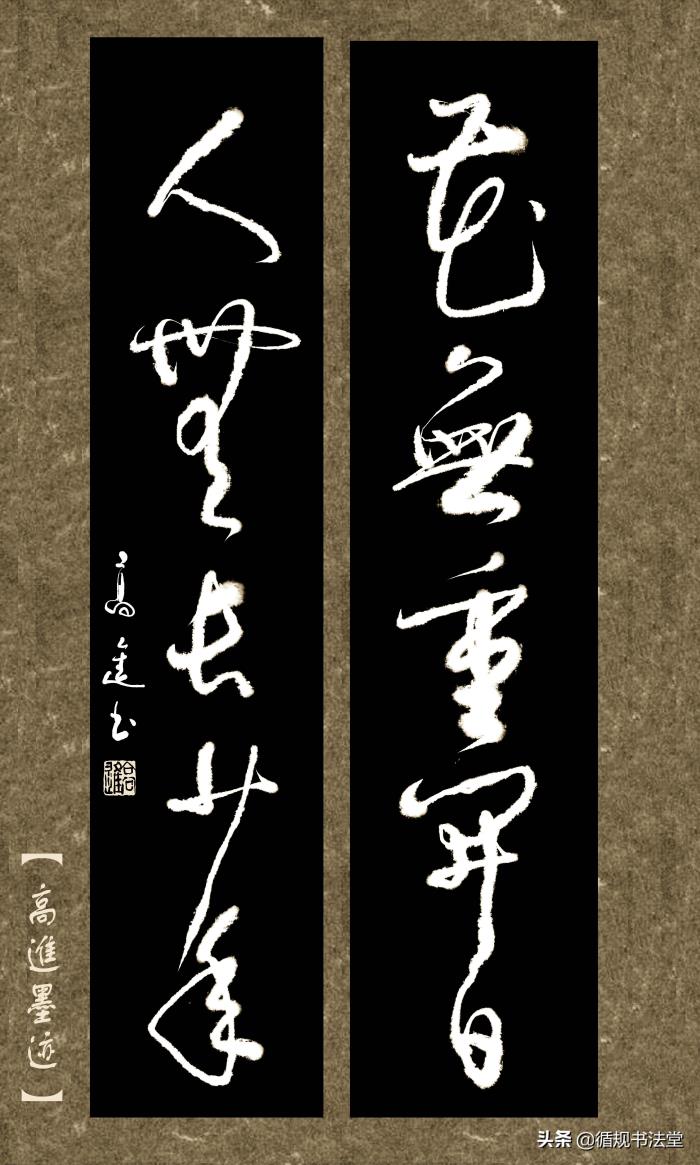 花無重開日
人無長少年
高進书
高進
【高進墨迹】
头条 @循规书法堂